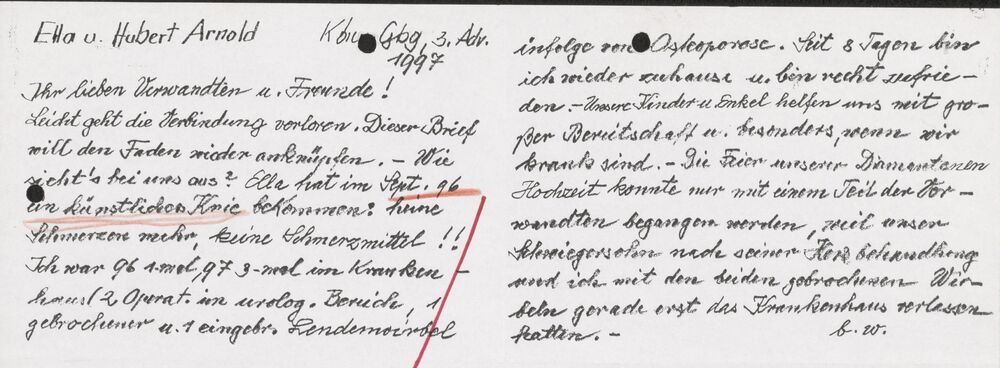 Ella u. Hubert Arnold Gbg, 3. Adv.
1997
Ihr lieben Verwandten u. Freunde!
Leicht geht die Verbindung verloren. Dieser Brief
will den Faden wieder anknüpfen. – Wie
sieht's bei uns aus? Ella hat im Sept. 96
ein künstliches Knie bekommen: keine
Schmerzen mehr, keine Schmerzmittel!!
Ich war 96 1-mal, 97 3-mal im Kranken-
haus (2 Operat. im urolog. Bereich, 1
gebrochener u. 1 eingebr. Lendenwirbel
infolge von Osteoporose. Seit 8 Tagen bin
ich wieder zuhause u. bin recht zufrie-
den. – Unsere Kinder u. Enkel helfen uns mit gro-
ßer Bereitschaft u. besonders, wenn wir
krank sind. – Die Feier unserer Diamantenen
Hochzeit konnte nur mit einem Teil der Ver-
wandten begangen werden, weil unser
Schwiegersohn nach seiner Herzbehandlung
und ich mit den beiden gebrochenen Wir-
beln gerade erst das Krankenhaus verlassen
hatten. – b. w.